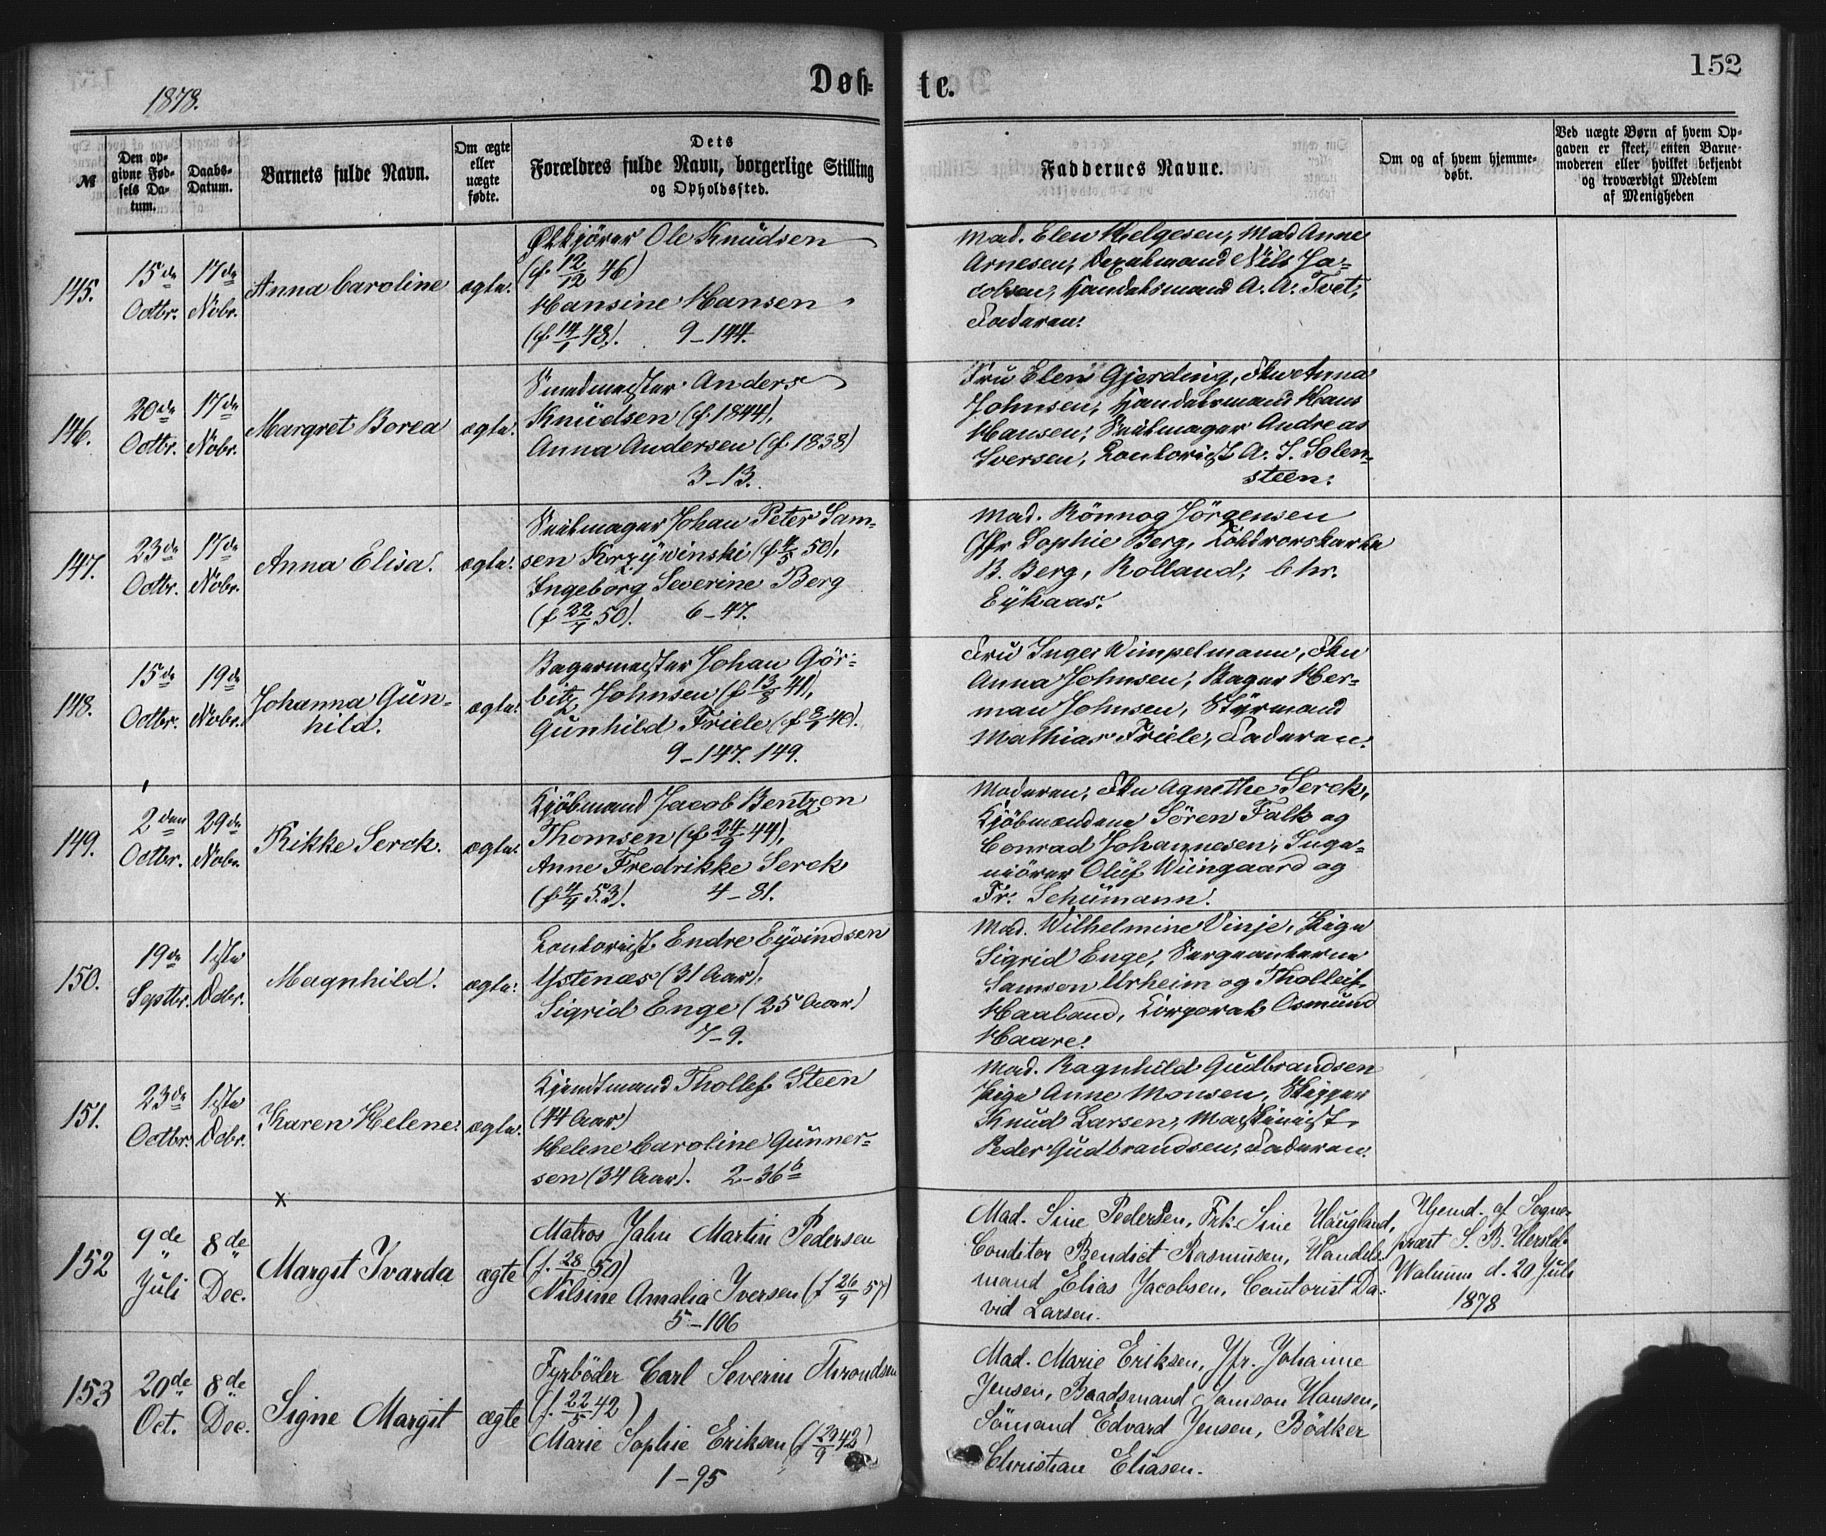 1878.
Døb-
te.
152
№
Den op-
givne Fød-
sels Da-
tum.
Daabs-
Datum.
Barnets fulde Navn.
Om ægte
eller
uægte
fødte.
Dets
Forældres fulde Navn, borgerlige Stilling
og Opholdssted.
Faddernes Navne.
Om og af hvem hjemme-
døbt.
Ved uægte Børn af hvem Op-
gaven er skeet, enten Barne-
moderen eller hvilket bekjendt
og troværdigt Medlem
af Menigheden
145.
15de
Octbr.
17de
Nobr.
Anna Caroline
ægte.
Ølkjører Ole Knudsen
(f. 12/12 46)
Hansine Hansen
(f. 14/1 48). 9-144.
Mad. Elen Helgesen, Mad Anne
Arnesen, Nils Ja-
cobsen, Handelsmand A. A. Tvet,
Faderen.
146.
20de
Octbr.
17de
Nobr.
Margret Borea
ægte.
Smedmester Anders
Knudsen (f. 1844),
Anna Andersen (f. 1838)
3-13.
Fru Elen Gjerding, Frk Anna
Johnsen, Handelsmand Hans
Hansen, Skibmager Andreas
Iversen, Contorist A. J. Solen-
steen.
147.
23de
Octbr.
17de
Nobr.
Anna Elisa.
ægte.
Johan Peter Sam-
sen Krzywinski (f. 4/5 50),
Ingeborg Severine Berg
(f. 22/1 50). 6-47.
Mad. Rönnog Jörgensen
Jfr Sophie Berg,
B. Berg, Rolland, Chr.
Eykaas.
148.
15de
Octbr.
19de
Nobr.
Johanna Gun-
hild.
ægte.
Bagermester Johan Gör-
bitz Johnsen (f 13/8 41),
Gunhild Friele (f 3/1 40).
9-147. 149.
Fru Inger Wimpelmann, Frk
Anna Johnsen, Bager Her-
man Johnsen, Styrmand
Mathias Friele, Faderen.
149.
2den
Octbr.
29de
Nobr.
Rikke Serck.
ægte.
Kjøbmand Jacob Bentzon
Thomsen (f 24/9 44),
Anne Fredrikke Serck
(f. 4/4 53). 4-81.
Moderen, Frk Agnethe Serck,
Kjøbmændene Sören Falk og
Conrad Johannesen, Inge-
niörer Oluf Wiingaard og
Fr. Schumann.
150.
19de
Septbr.
1ste
Decbr.
Magnhild.
ægte.
Contorist Endre Eyvindsen
Ystenæs (31 Aar),
Sigrid Enge (25 Aar)
7-9.
Mad. Wilhelmine Vinje, Pige
Sigrid Enge, Sergeanterne
Samson Urheim og Tholleif
Haaland, Korporal Osmund
Haare.
151.
23de
Octbr.
1ste
Decbr.
Karen Helene.
ægte.
Kjendtmand Thollef Steen
(44 Aar)
Helene Caroline Gunner-
sen (34 Aar). 2-36b
Mad. Ragnhild Gudbrandsen
Pige Anne Monsen, Skipper
Knud Larsen, Maskinist
Peder Gudbrandsen, Faderen.
x
152
9de
Juli
8de
Dec.
Margit Ivarda
ægte
Matros Jahn Martin Pedersen
(f. 28/1 50)
Nilsine Amalia Iversen (f 26/9 57)
5-106
Mad. Sine Pedersen, Frk. Sine Haugland,
Conditor Bendict Rasmusen, Handels-
mand Elias Jacobsen, Contorist Da-
vid Larsen.
Hjemd. af Sogne-
præst S. B. Hersleb
Walnum d. 20 Juli
1878
153
20de
Oct.
8de
Dec.
Signe Margit
ægte
Fyrbøder Carl Severin Throndsen
(f. 22/5 42)
Marie Sophie Eriksen (f 29/9 42)
1-95
Mad. Marie Eriksen, Jfr. Johanne
Jensen, Baadsmand Samson Hansen,
Sömand Edvard Jensen, Bödker
Christian Eliasen.